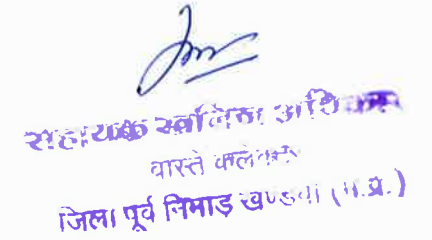 सहायक खनिज अधिकारी
वास्ते कलेक्टर
जिला पूर्व निमाड़ खण्डवा (म.प्र.)